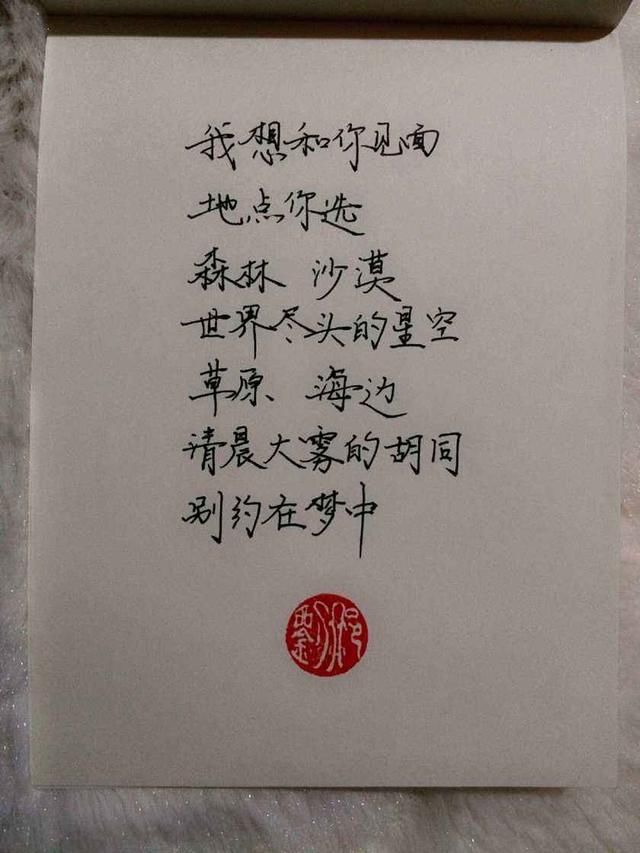 我想和你见面
地点你选
森林 沙漠
世界尽头的星空
草原、海边
清晨大雾的胡同
别约在梦中